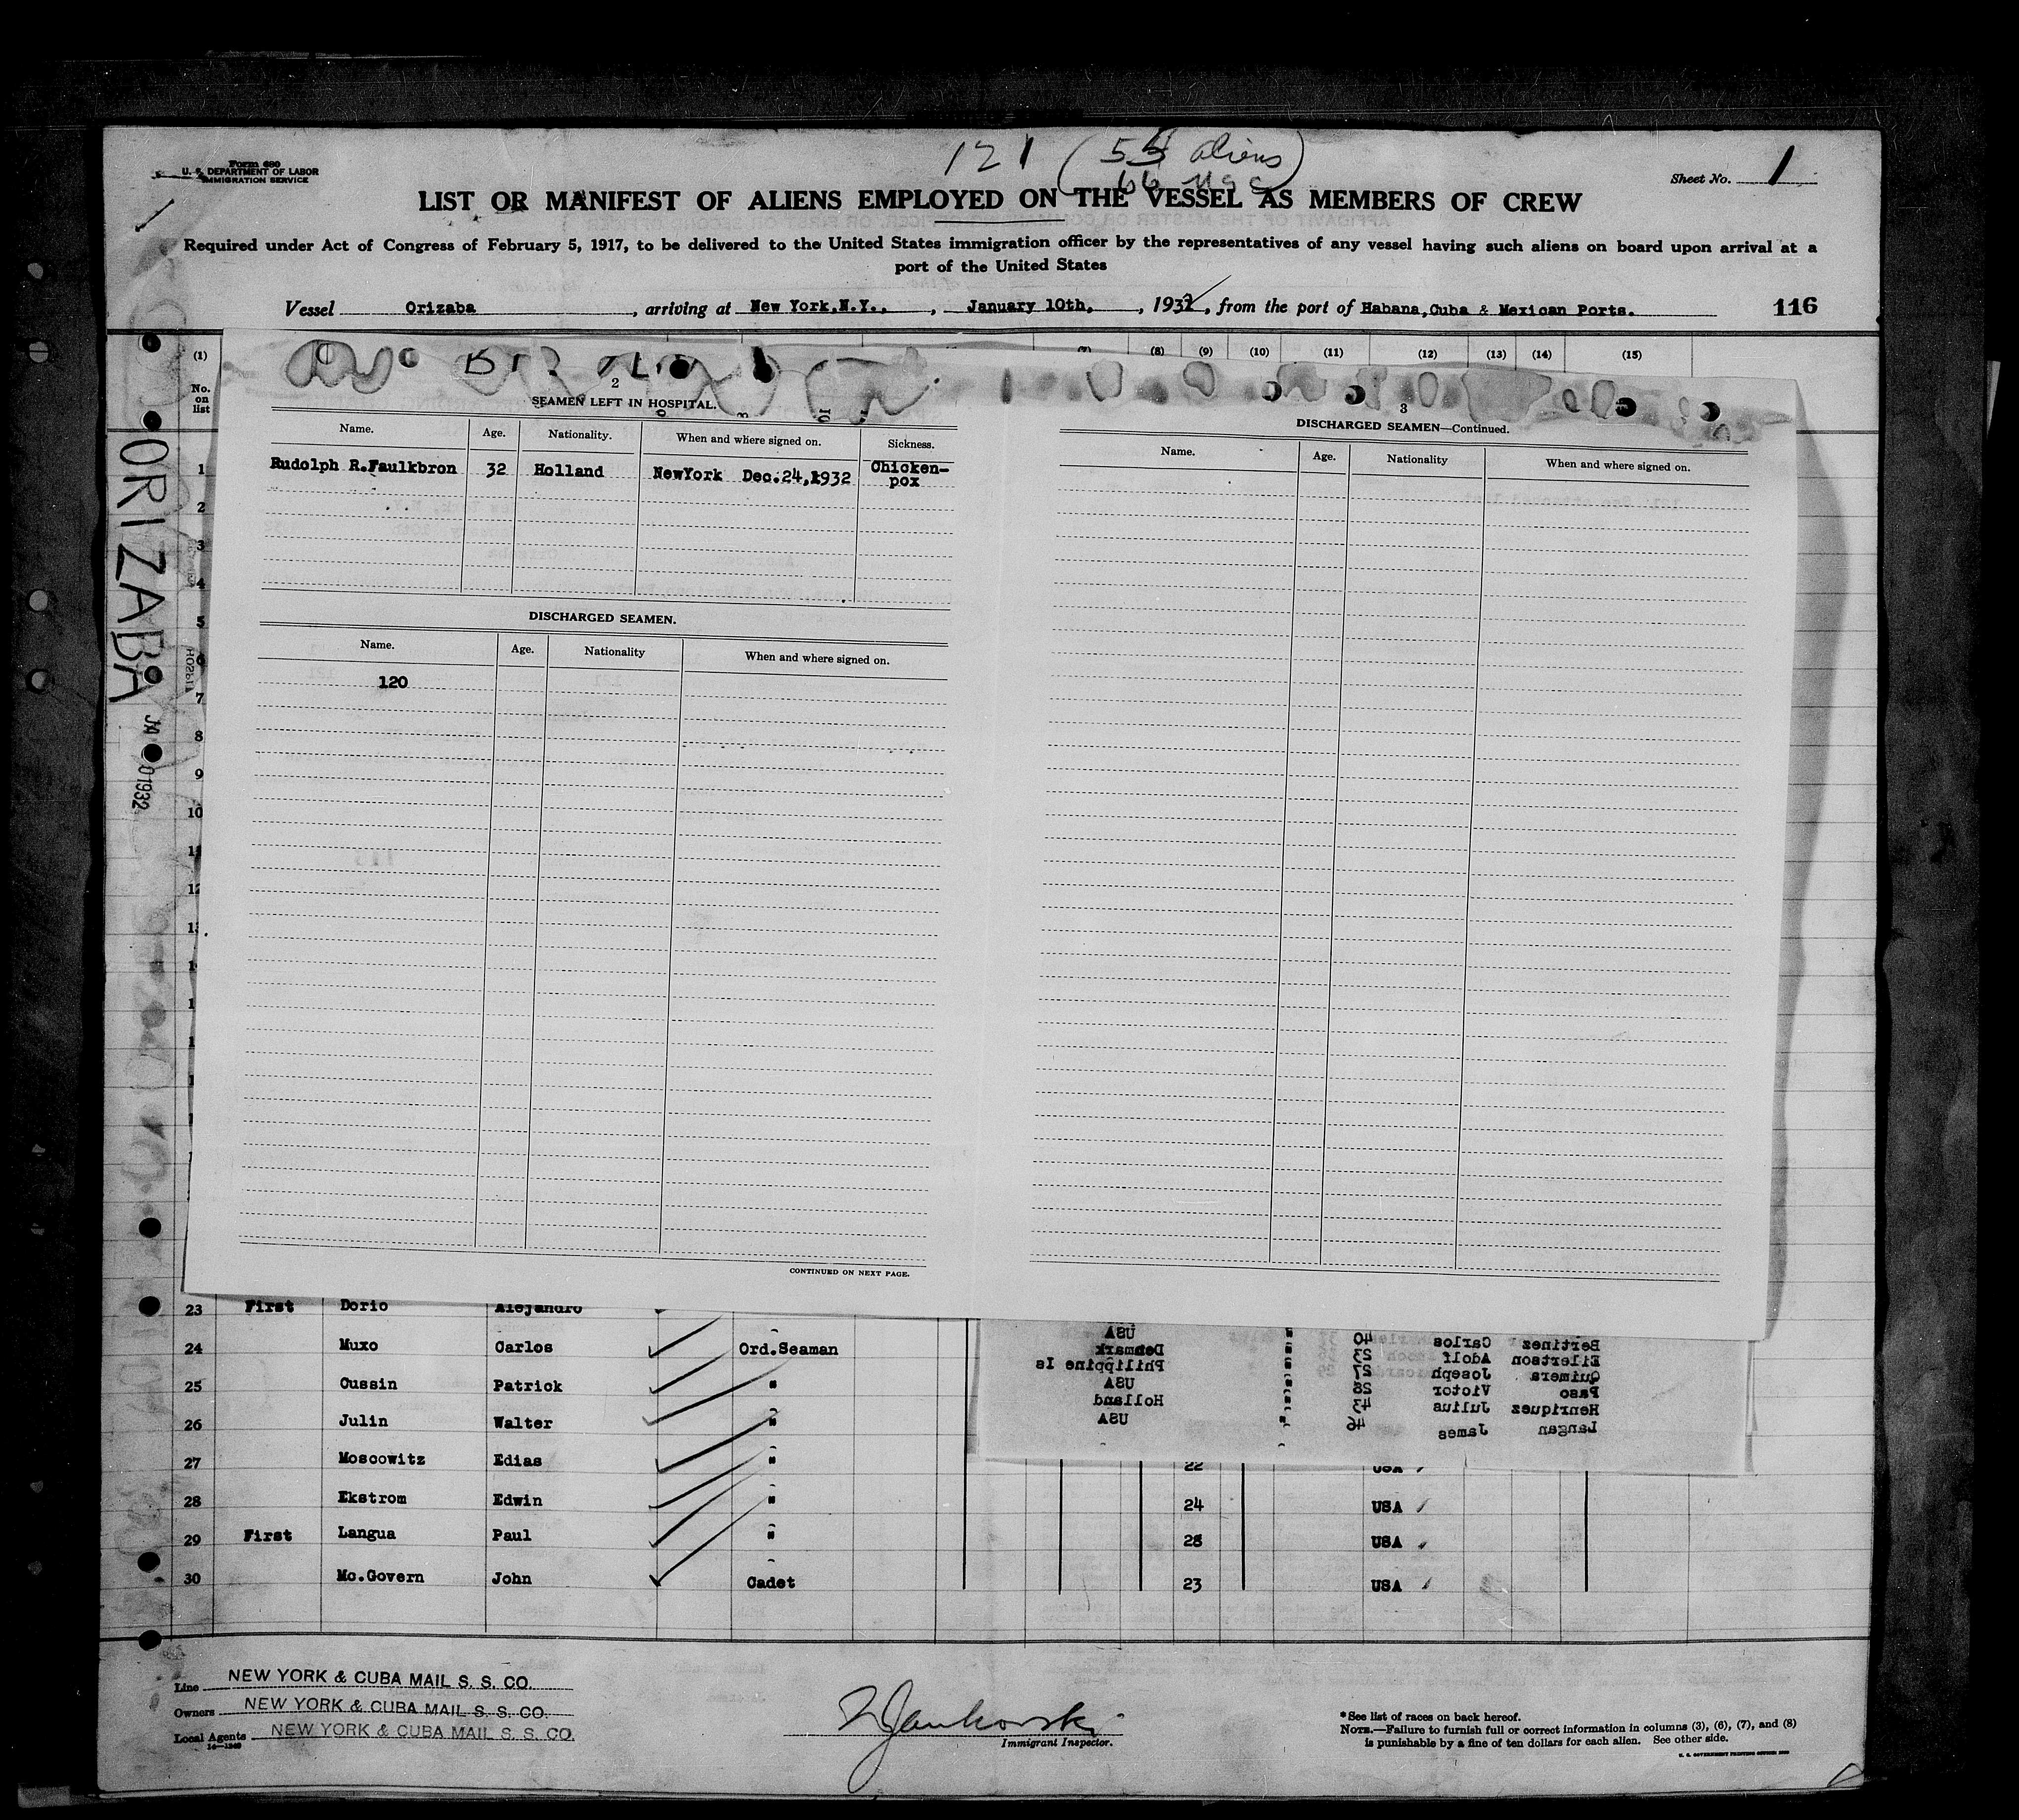 Form 680
U. S. DEPARTMENT OF LABOR
IMMIGRATION SERVICE
121 (54 aliens)
66 USC
Sheet No. 1
LIST OR MANIFEST OF ALIENS EMPLOYED ON THE VESSEL AS MEMBERS OF CREW
Required under Act of Congress of February 5, 1917, to be delivered to the United States immigration officer by the representatives of any vessel having such aliens on board upon arrival at a
port of the United States
Vessel Orizaba, arriving at New York,N.Y., , January 10th, , 1932, from the port of Habana,Cuba & Mexican Ports. 116
(1) (7) (8) (9) (10) (11) (12) (13) (14) (15)
No. on list
ORIZABA
JA 01932
2
SEAMEN LEFT IN HOSPITAL.
Name. Age. Nationality. When and where signed on. Sickness.
Rudolph R.Faulkbron 32 Holland NewYork Dec.24,1932 Chicken-
pox
DISCHARGED SEAMEN.
Name. Age. Nationality When and where signed on.
120
CONTINUED ON NEXT PAGE.
3
DISCHARGED SEAMEN—Continued.
Name. Age. Nationality When and where signed on.
1
2
3
4
5
6
7
8
9
10
11
12
13
23 First Dorio Alejandro
24 Muxo Carlos Ord.Seaman
25 Cussin Patrick "
26 Julin Walter "
27 Moscowitz Edias " 22 USA
28 Ekstrom Edwin " 24 USA
29 First Langua Paul " 28 USA
30 Mc.Govern John Cadet 23 USA
Bertinez Carlos 40 USA
Eilertson Adolf Denmark
Quimera Joseph Philippine Is
Paso Victor 28 USA
Henriquez Julius Holland
Langan James 46 USA
Line NEW YORK & CUBA MAIL S. S. CO.
Owners NEW YORK & CUBA MAIL S. S. CO.
Local Agents NEW YORK & CUBA MAIL S. S. CO.
14—1240
Immigrant Inspector.
*See list of races on back hereof.
NOTE.—Failure to furnish full or correct information in columns (3), (6), (7), and (8)
is punishable by a fine of ten dollars for each alien. See other side.
U. S. GOVERNMENT PRINTING OFFICE